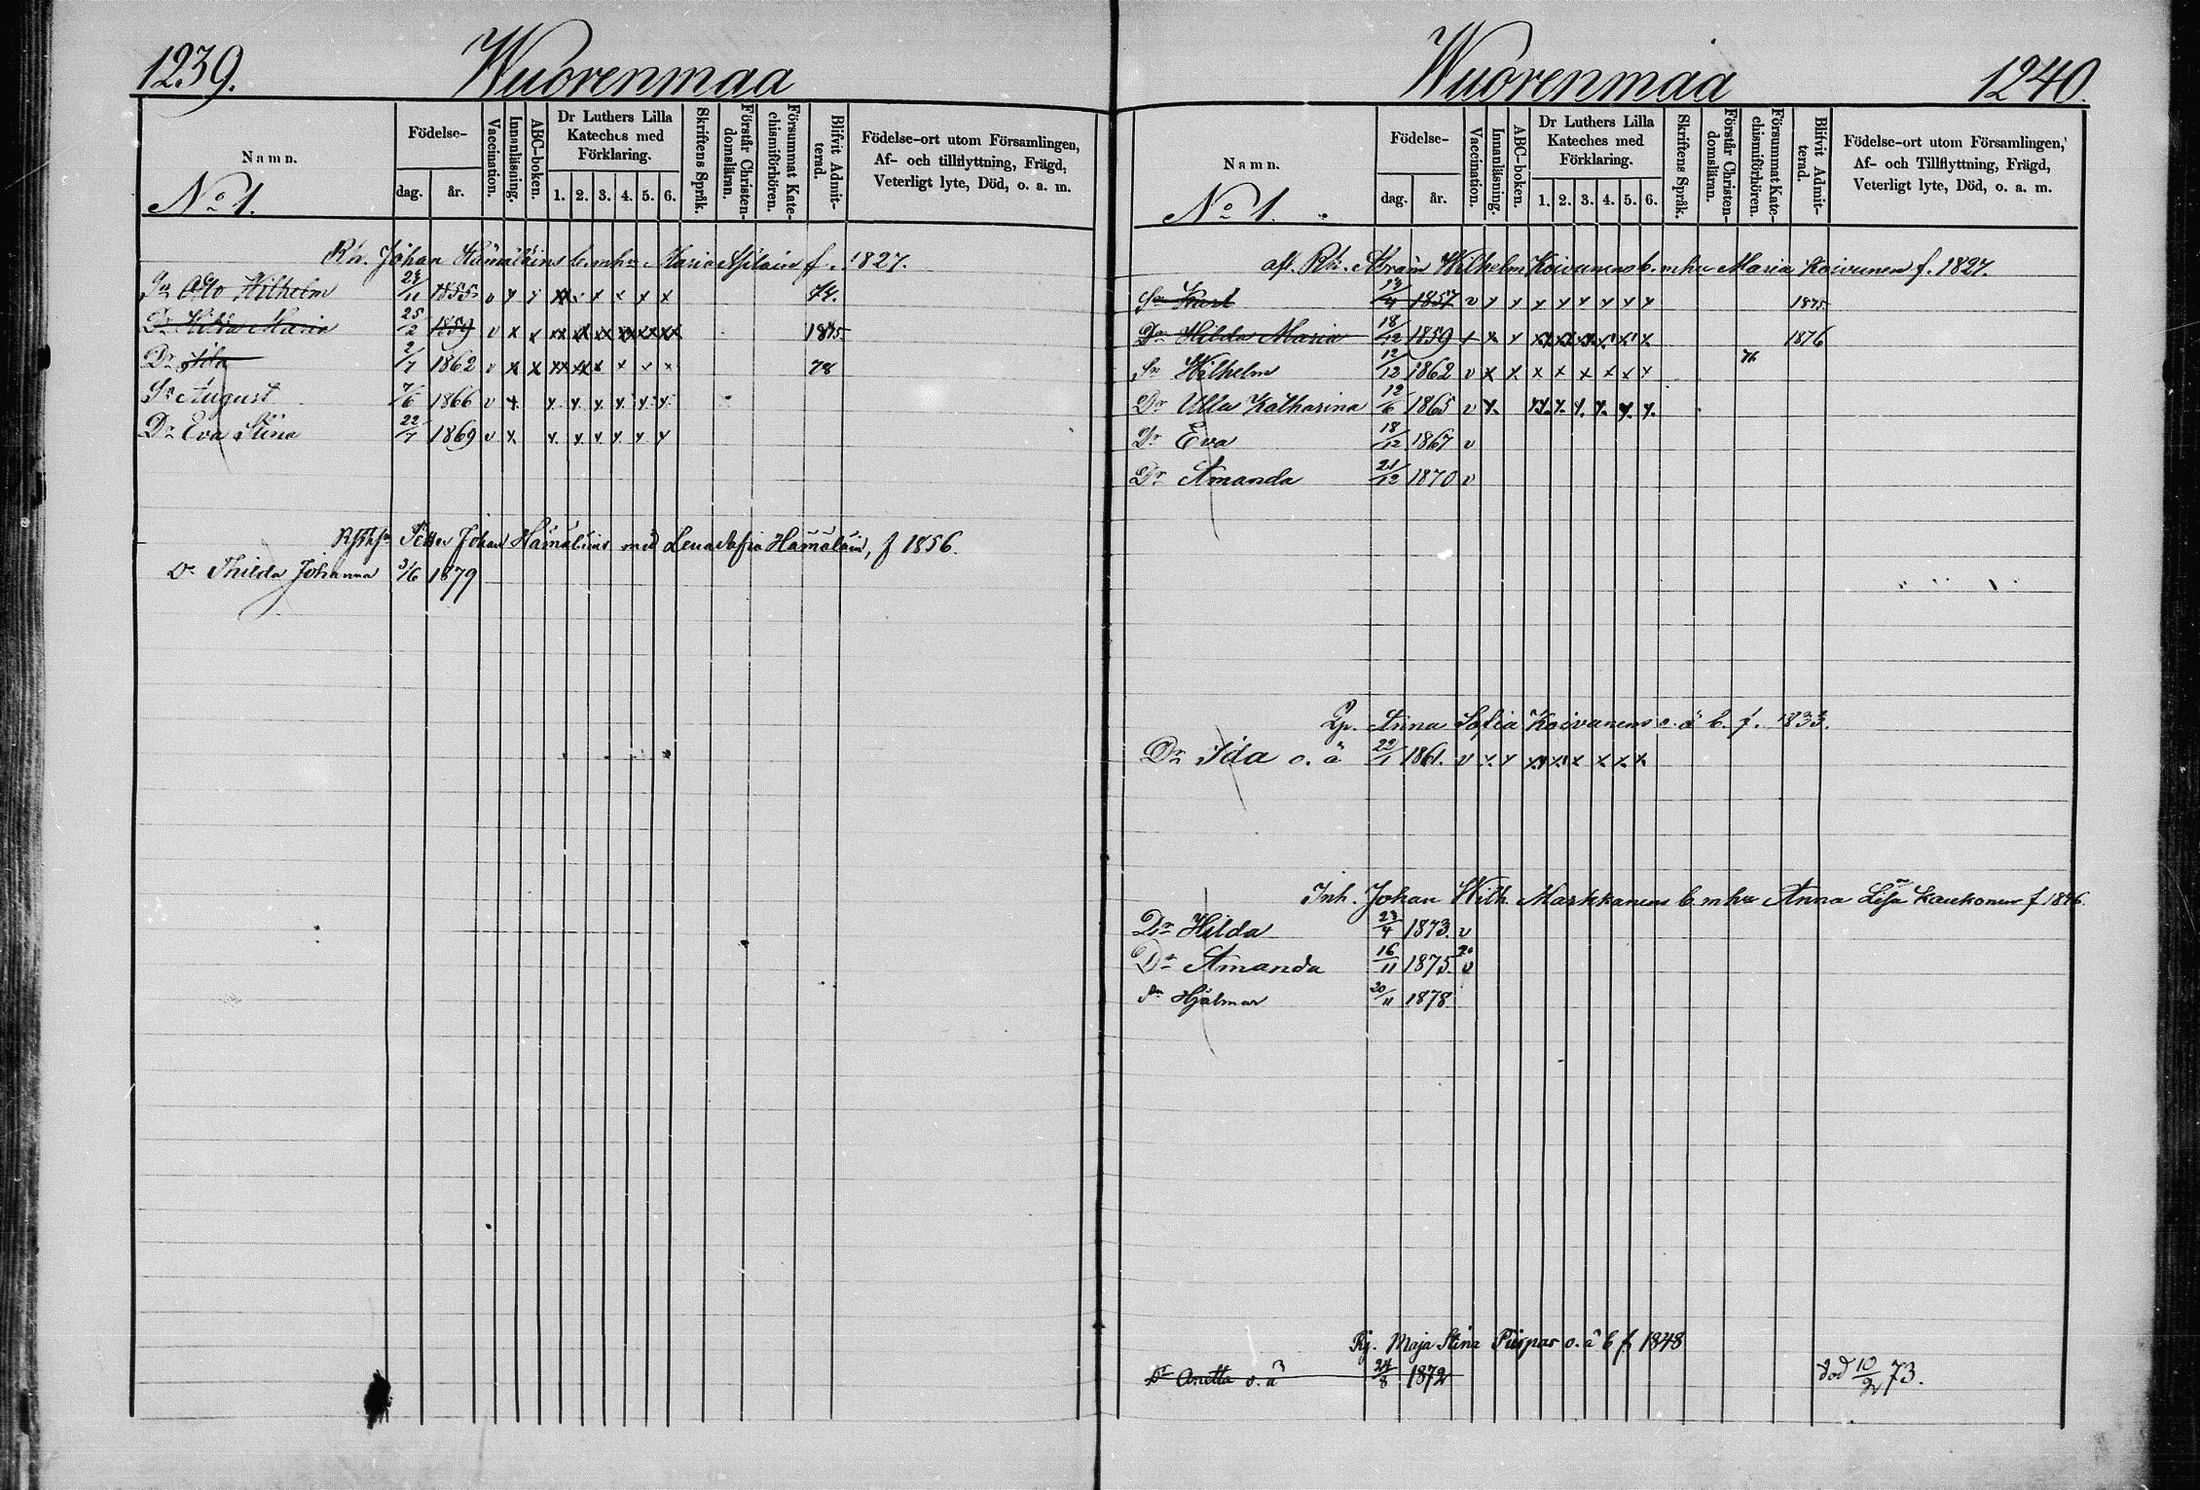 1239.
Wuorenmaa
Namn.
No 1.
Födelse-
dag.
år.
Vaccination.
Innanläsning.
ABC-boken.
Dr Luthers Lilla
Kateches med
Förklaring.
1. 2. 3. 4. 5. 6.
Skriftens Språk.
Förstår Christen-
domsläran.
Försummat Kate-
chismiförhören.
Blifvit Admit-
terad.
Födelse-ort utom Församlingen,
Af- och tillflyttning, Frägd,
Veterligt lyte, Död, o. a. m.
Rh. Johan Hämäläins b. m hu Maria f. 1827.
Sn Otto Wilhelm 24/11 1855 v x x xx x x x x x 74.
Dr Hilda Maria 25/2 1859 v x x xx xx xx xx xx xx 1875.
Dr Ida 2/7 1862 v x x xx xx x x x x 78
Sn August 7/6 1866 v x. x. x. x. x. x. x.
Dr Eva Stina 22/7 1869 v x. x. x. x. x. x. x
Johan Hämäläins med Lena Sofia Hämäläin, f 1856.
Dr Thilda Johanna 3/6 1879
Wuorenmaa
1240.
Namn.
No 1.
Födelse-
dag.
år.
Vaccination.
Innanläsning.
ABC-boken.
Dr Luthers Lilla
Kateches med
Förklaring.
1. 2. 3. 4. 5. 6.
Skriftens Språk.
Förstår Christen-
domsläran.
Försummat Kate-
chismiförhören.
Blifvit Admit-
terad.
Födelse-ort utom Församlingen,
Af- och Tillflyttning, Frägd,
Veterligt lyte, Död, o. a. m.
afl. Rh. Abram Wilhelm Koivunens b. m hu Maria Koivunen f. 1827.
Sn Karl 13/4 1857 v x x x x x x x x 1875.
Dr Hilda Maria 18/12 1859 + x x xx xx xx x x x 1876
Sn Wilhelm 12/12 1862 v x x x x x x x x 76
Dr Ulla Katharina 12/6 1865 v x. xx. x. x. x. x. x.
Dr Eva 18/12 1867 v
Dr Amanda 21/12 1870 v
Anna Sofia Koivunens o. ä b. f. 1833.
Dr Ida o. ä 22/1 1861. v x. x xx xx x x. x. x.
Inh. Johan Wilh. Markkanens b. m hu Anna Lisa Kaukonen f 1846.
Dr Hilda 23/4 1873. v
Dr Amanda 16/11 1875. v
Sn Hjalmar 20/11 1878.
Maja Stina o. ä b f 1848
Dr Anetta o. ä 24/8 1872 död 10/2 73.